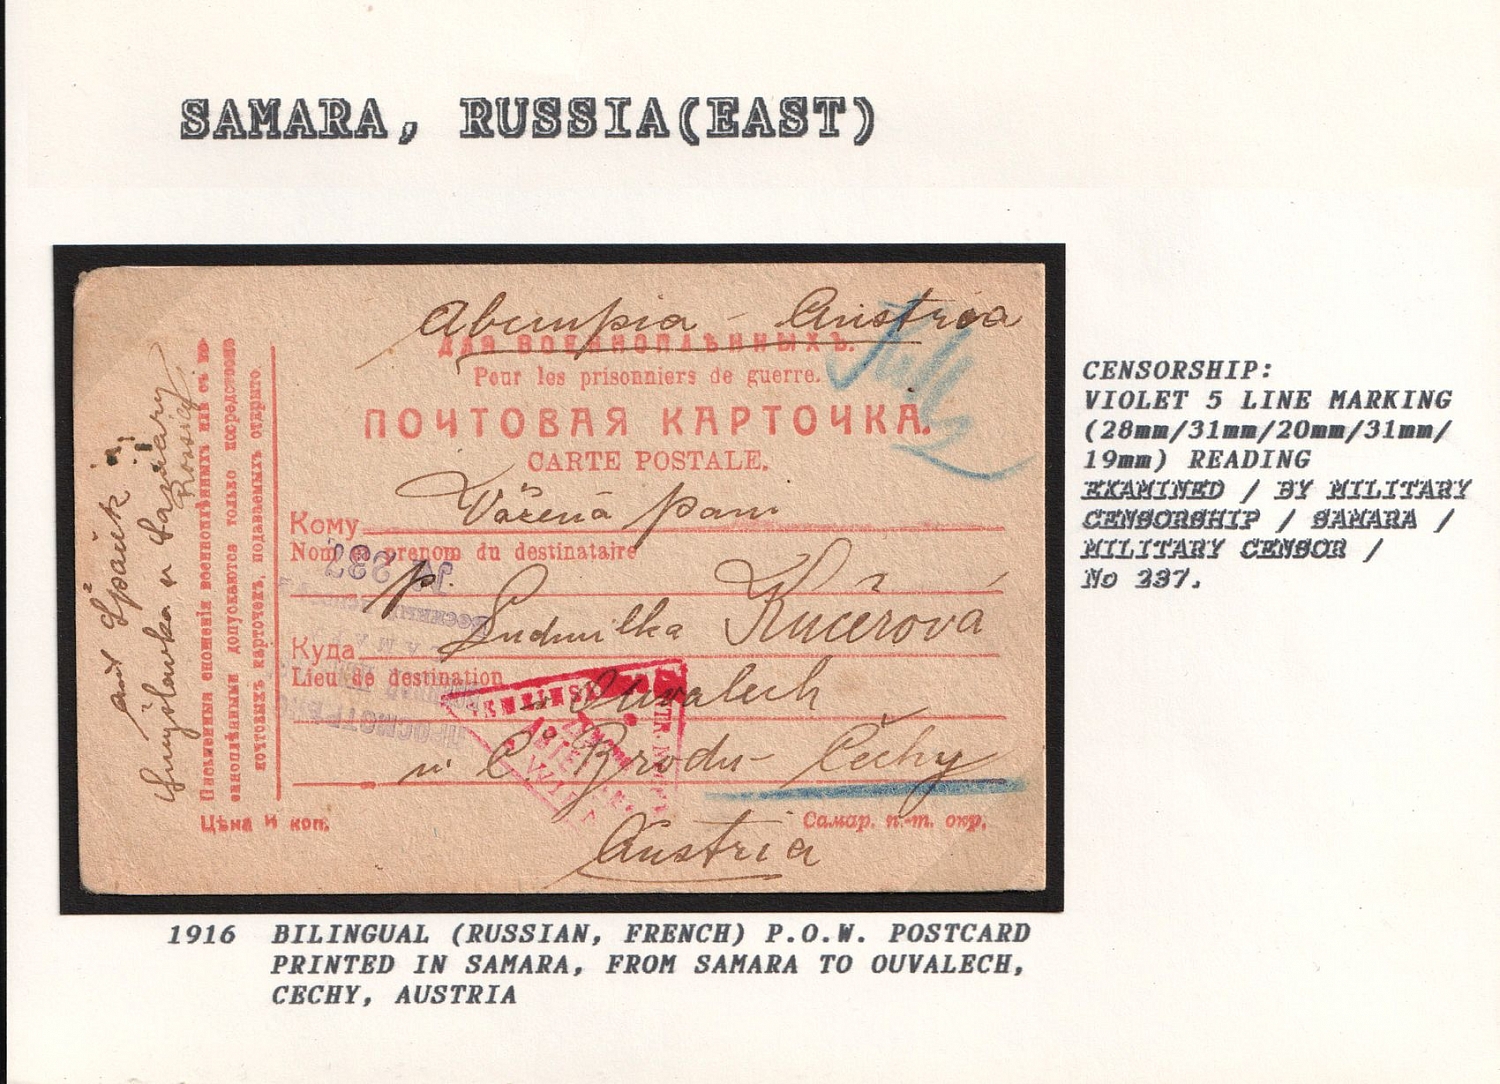 SAMARA, RUSSIA(EAST)
Австрія - Austria
ДЛЯ ВОЕННОПЛѢННЫХЪ.
Pour les prisonniers de guerre.
ПОЧТОВАЯ КАРТОЧКА.
CARTE POSTALE.
Vážená paní
Кому
Nom et prénom du destinataire
p. Ludmilka Kučerová
Куда
Lieu de destination
Ouvalech
u Č. Brodu - Čechy
Austria
Цѣна ½ коп.
Самар. п.-т. окр.
Письменныя сношенія военноплѣнныхъ или съ во-
еннoплѣнными допускаются только посредствомъ
почтовыхъ карточекъ, подаваемыхъ открыто.
№ 237
ПРОСМОТРЕНО
WIEN
CENSORSHIP:
VIOLET 5 LINE MARKING
(28mm/31mm/20mm/31mm/
19mm) READING
EXAMINED / BY MILITARY
CENSORSHIP / SAMARA /
MILITARY CENSOR /
No 237.
1916 BILINGUAL (RUSSIAN, FRENCH) P.O.W. POSTCARD
PRINTED IN SAMARA, FROM SAMARA TO OUVALECH,
CECHY, AUSTRIA